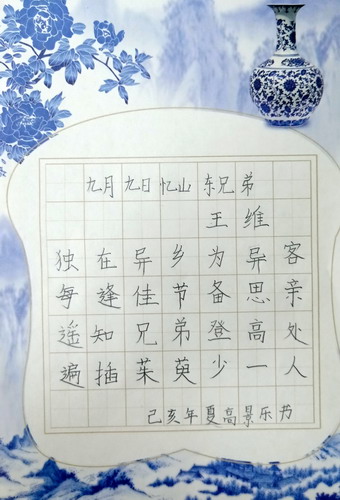 九月九日忆山东兄弟
王维
独在异乡为异客
每逢佳节备思亲
遥知兄弟登高处
遍插茱萸少一人
己亥年夏高景乐书